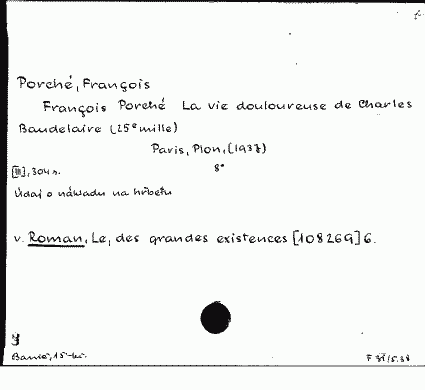 Porché, François
François Porché La vie douloureuse de Charles
Baudelaire (25e mille)
Paris, Plon, (1937)
[III], 304 s. 8°
Údaj o nákladu na hřbetu
v. Roman, Le, des grandes existences [108269] 6.